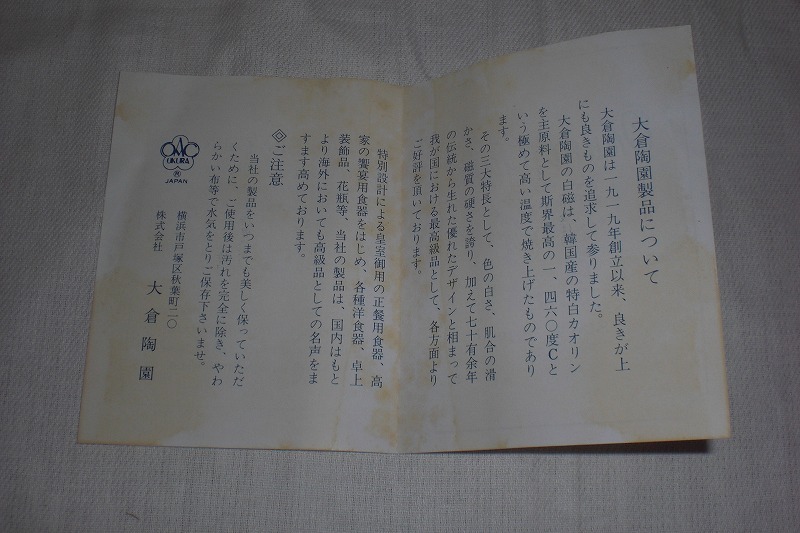 大倉陶園製品について
大倉陶園は一九一九年創立以来、良きが上
にも良きものを追求して参りました。
大倉陶園の白磁は、韓国産の特白カオリン
を主原料として斯界最高の一、四六〇度Cと
いう極めて高い温度で焼き上げたものであり
ます。
その三大特長として、色の白さ、肌合の滑
かさ、磁質の硬さを誇り、加えて七十有余年
の伝統から生れた優れたデザインと相まって
我が国における最高級品として、各方面より
ご好評を頂いております。
特別設計による皇室御用の正餐用食器、高
家の饗宴用食器をはじめ、各種洋食器、卓上
装飾品、花瓶等、当社の製品は、国内はもと
より海外においても高級品としての名声をま
すます高めております。
ご注意
当社の製品をいつまでも美しく保っていただ
くために、ご使用後は汚れを完全に除き、やわ
らかい布等で水気をとりご保存下さいませ。
横浜市戸塚区秋葉町二〇
株式会社 大倉陶園
OAC
OKURA
®
JAPAN